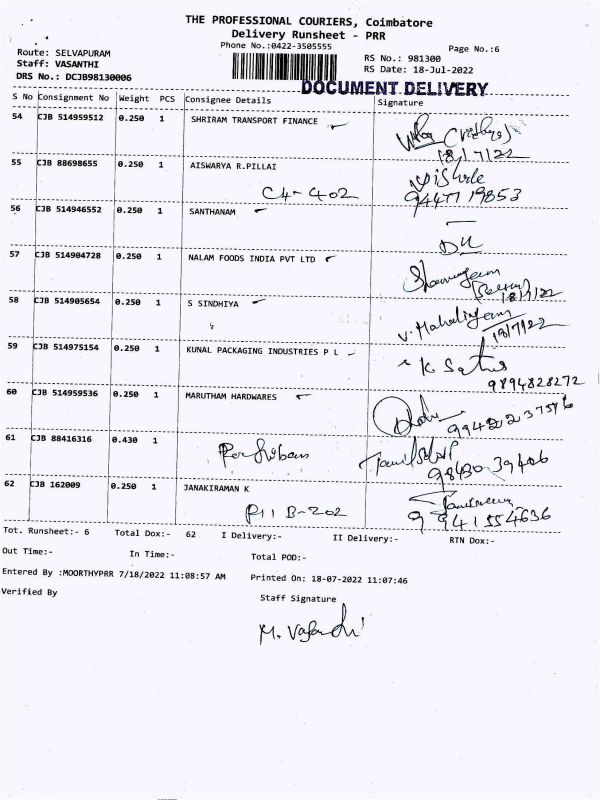 THE PROFESSIONAL COURIERS, Coimbatore
Delivery Runsheet - PRR
Phone No.:0422-3505555
Page No.:6
Route: SELVAPURAM
Staff: VASANTHI
DRS No.: DCJB98130006
RS No.: 981300
RS Date: 18-Jul-2022
DOCUMENT DELIVERY
S No Consignment No Weight PCS Consignee Details Signature
54 CJB 514959512 0.250 1 SHRIRAM TRANSPORT FINANCE
18/7/22
55 CJB 88698655 0.250 1 AISWARYA R.PILLAI
C4-402 9447719853
56 CJB 514946552 0.250 1 SANTHANAM
57 CJB 514904728 0.250 1 NALAM FOODS INDIA PVT LTD
18/7/22
58 CJB 514905654 0.250 1 S SINDHIYA
V. Mahalingam
18/7/22
59 CJB 514975154 0.250 1 KUNAL PACKAGING INDUSTRIES P L
9894828272
60 CJB 514959536 0.250 1 MARUTHAM HARDWARES
61 CJB 88416316 0.430 1
62 CJB 162009 0.250 1 JANAKIRAMAN K
B-202 9941554636
Tot. Runsheet:- 6 Total Dox:- 62 I Delivery:- II Delivery:- RTN Dox:-
Out Time:- In Time:- Total POD:-
Entered By :MOORTHYPRR 7/18/2022 11:08:57 AM Printed On: 18-07-2022 11:07:46
Verified By Staff Signature
M. Vasanthi